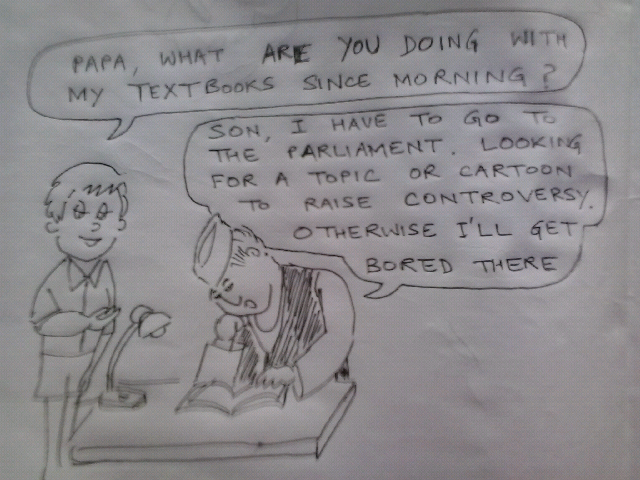 PAPA, WHAT ARE YOU DOING WITH
MY TEXTBOOKS SINCE MORNING?
SON, I HAVE TO GO TO
THE PARLIAMENT. LOOKING
FOR A TOPIC OR CARTOON
TO RAISE CONTROVERSY.
OTHERWISE I'LL GET
BORED THERE